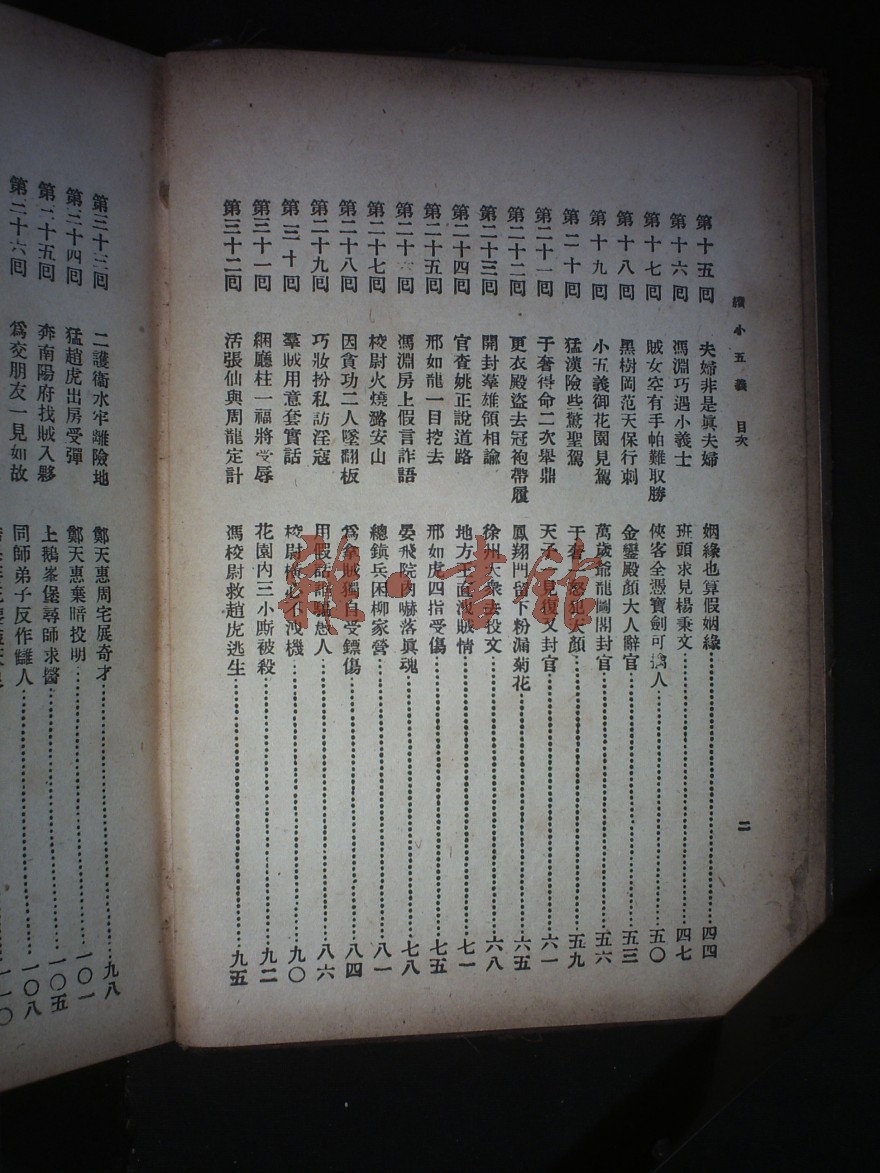 續小五義 目次 二
第十五回 夫婦非是眞夫婦 姻緣也算假姻緣 四四
第十六回 馮淵巧遇小義士 班頭求見楊秉文 四七
第十七回 賊女空有手帕難取勝 俠客全憑寶劍可擒人 五〇
第十八回 黑樹岡范天保行刺 金鑾殿顏大人辭官 五三
第十九回 小五義御花園見駕 萬歲爺龍圖閣封官 五六
第二十回 猛漢險些驚聖駕 于奢怒犯天顏 五九
第二十一回 于奢得命二次舉鼎 天子見復又封官 六一
第二十二回 更衣殿盜去冠袍帶履 鳳翔門留下粉漏菊花 六五
第二十三回 開封羣雄領相諭 徐州大衆去投文 六八
第二十四回 官查姚正說道路 地方王直洩賊情 七一
第二十五回 邢如龍一目挖去 邢如虎四指受傷 七五
第二十六回 馮淵房上假言詐語 晏飛院內嚇落眞魂 七八
第二十七回 校尉火燒潞安山 總鎭兵困柳家營 八一
第二十八回 因貪功二人墜翻板 爲拿賊獨自受鏢傷 八四
第二十九回 巧妝扮私訪淫寇 用假話誆騙愚人 八六
第三十回 羣賊用意套實話 校尉橫必不洩機 九〇
第三十一回 綑廳柱一福將受辱 花園內三小厮被殺 九二
第三十二回 活張仙與周龍定計 馮校尉救趙虎逃生 九五
第三十三回 二護衛水牢離險地 鄭天惠周宅展奇才 九八
第三十四回 猛趙虎出房受彈 鄭天惠棄暗投明 一〇一
第三十五回 奔南陽府找賊入夥 上鵝峯堡尋師求醫 一〇五
第三十六回 爲交朋友一見如故 同師弟子反作讎人 一〇八
一一〇
雜·書館